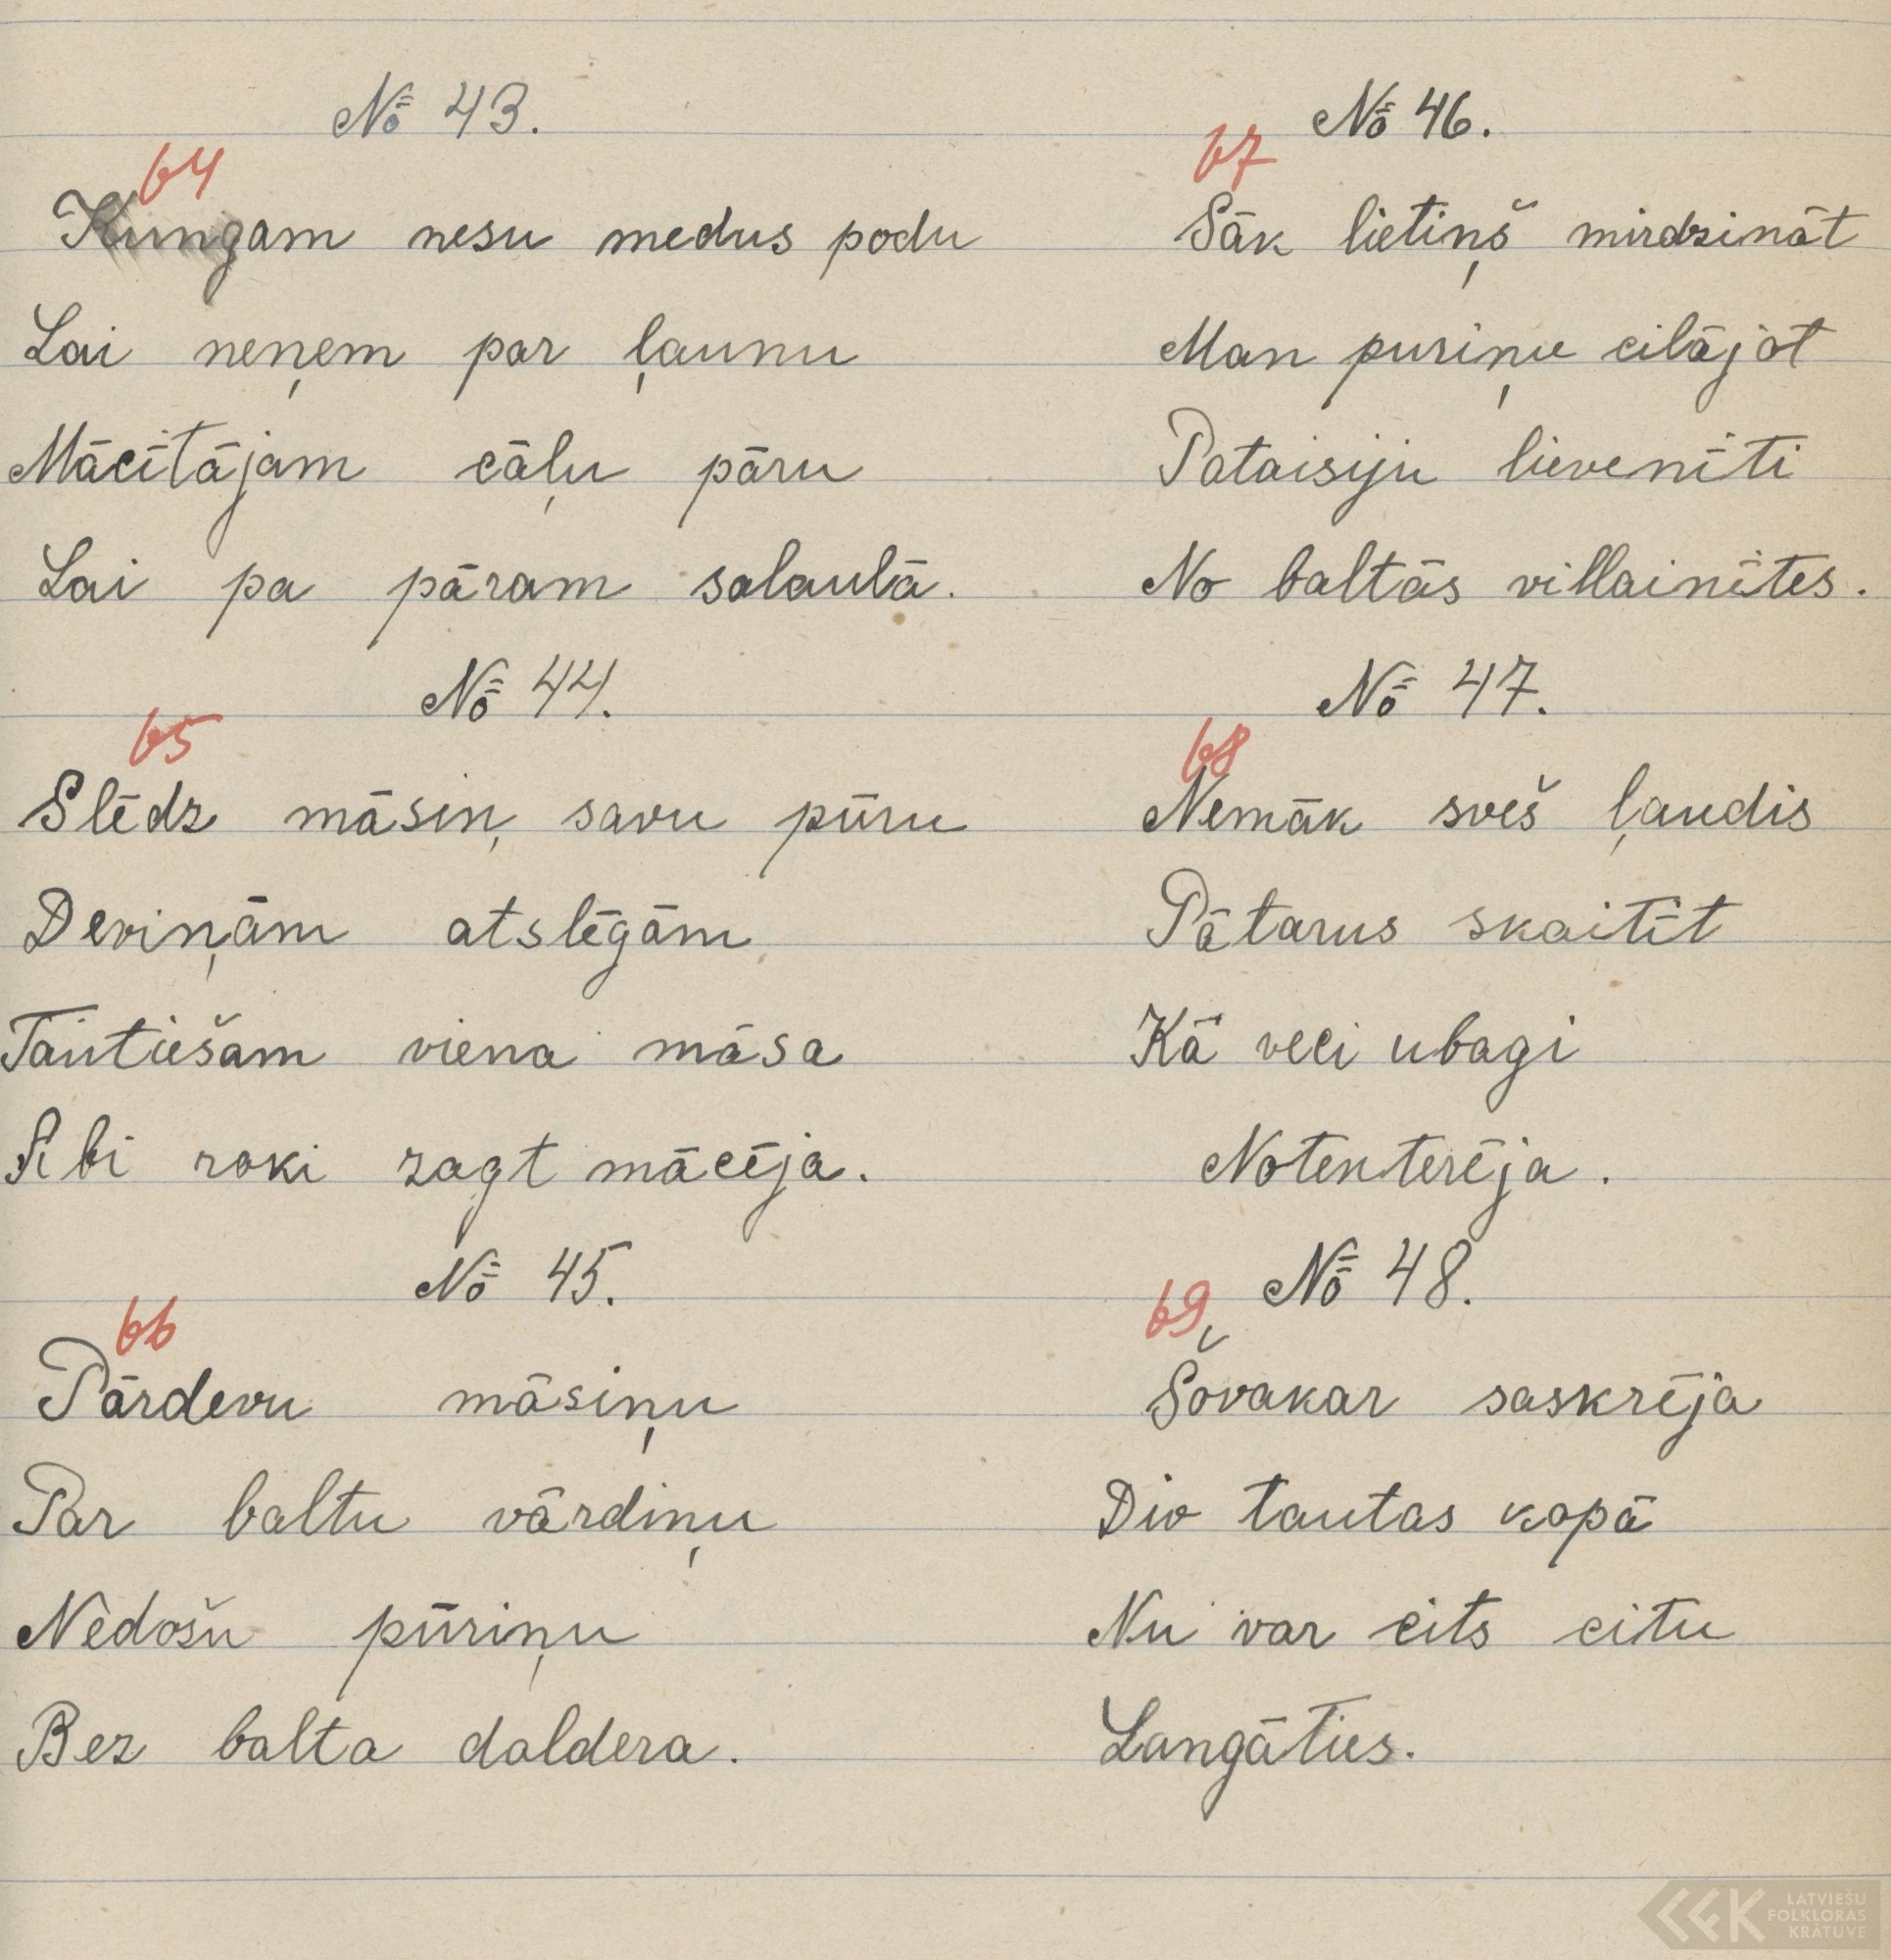 № 43.
64
Kungam nesu medus podu
Lai neņem par ļaunu
Mācītājam cāļu pāru
Lai pa pāram salaulā.
№ 44.
65
Slēdz māsiņ savu pūru
Deviņām atslēgām
Tautiešam viena māsa
Abi roki zagt mācēja.
№ 45.
66
Pārdevu māsiņu
Par baltu vārdiņu
Nedošu pūriņu
Bez balta daldera.
№ 46.
67
Sāk lietiņš mirdzināt
Man puriņu cilājot
Pataisiju lievenīti
No baltās villainītes.
№ 47.
68
Nemāk sveš ļaudis
Pātarus skaitīt
Kā veci ubagi
Notenterēja.
№ 48.
69
Šovakar saskrēja
Div tautas kopā
Nu var cits citu
Langāties.
LATVIEŠU
FOLKLORAS
KRĀTUVE